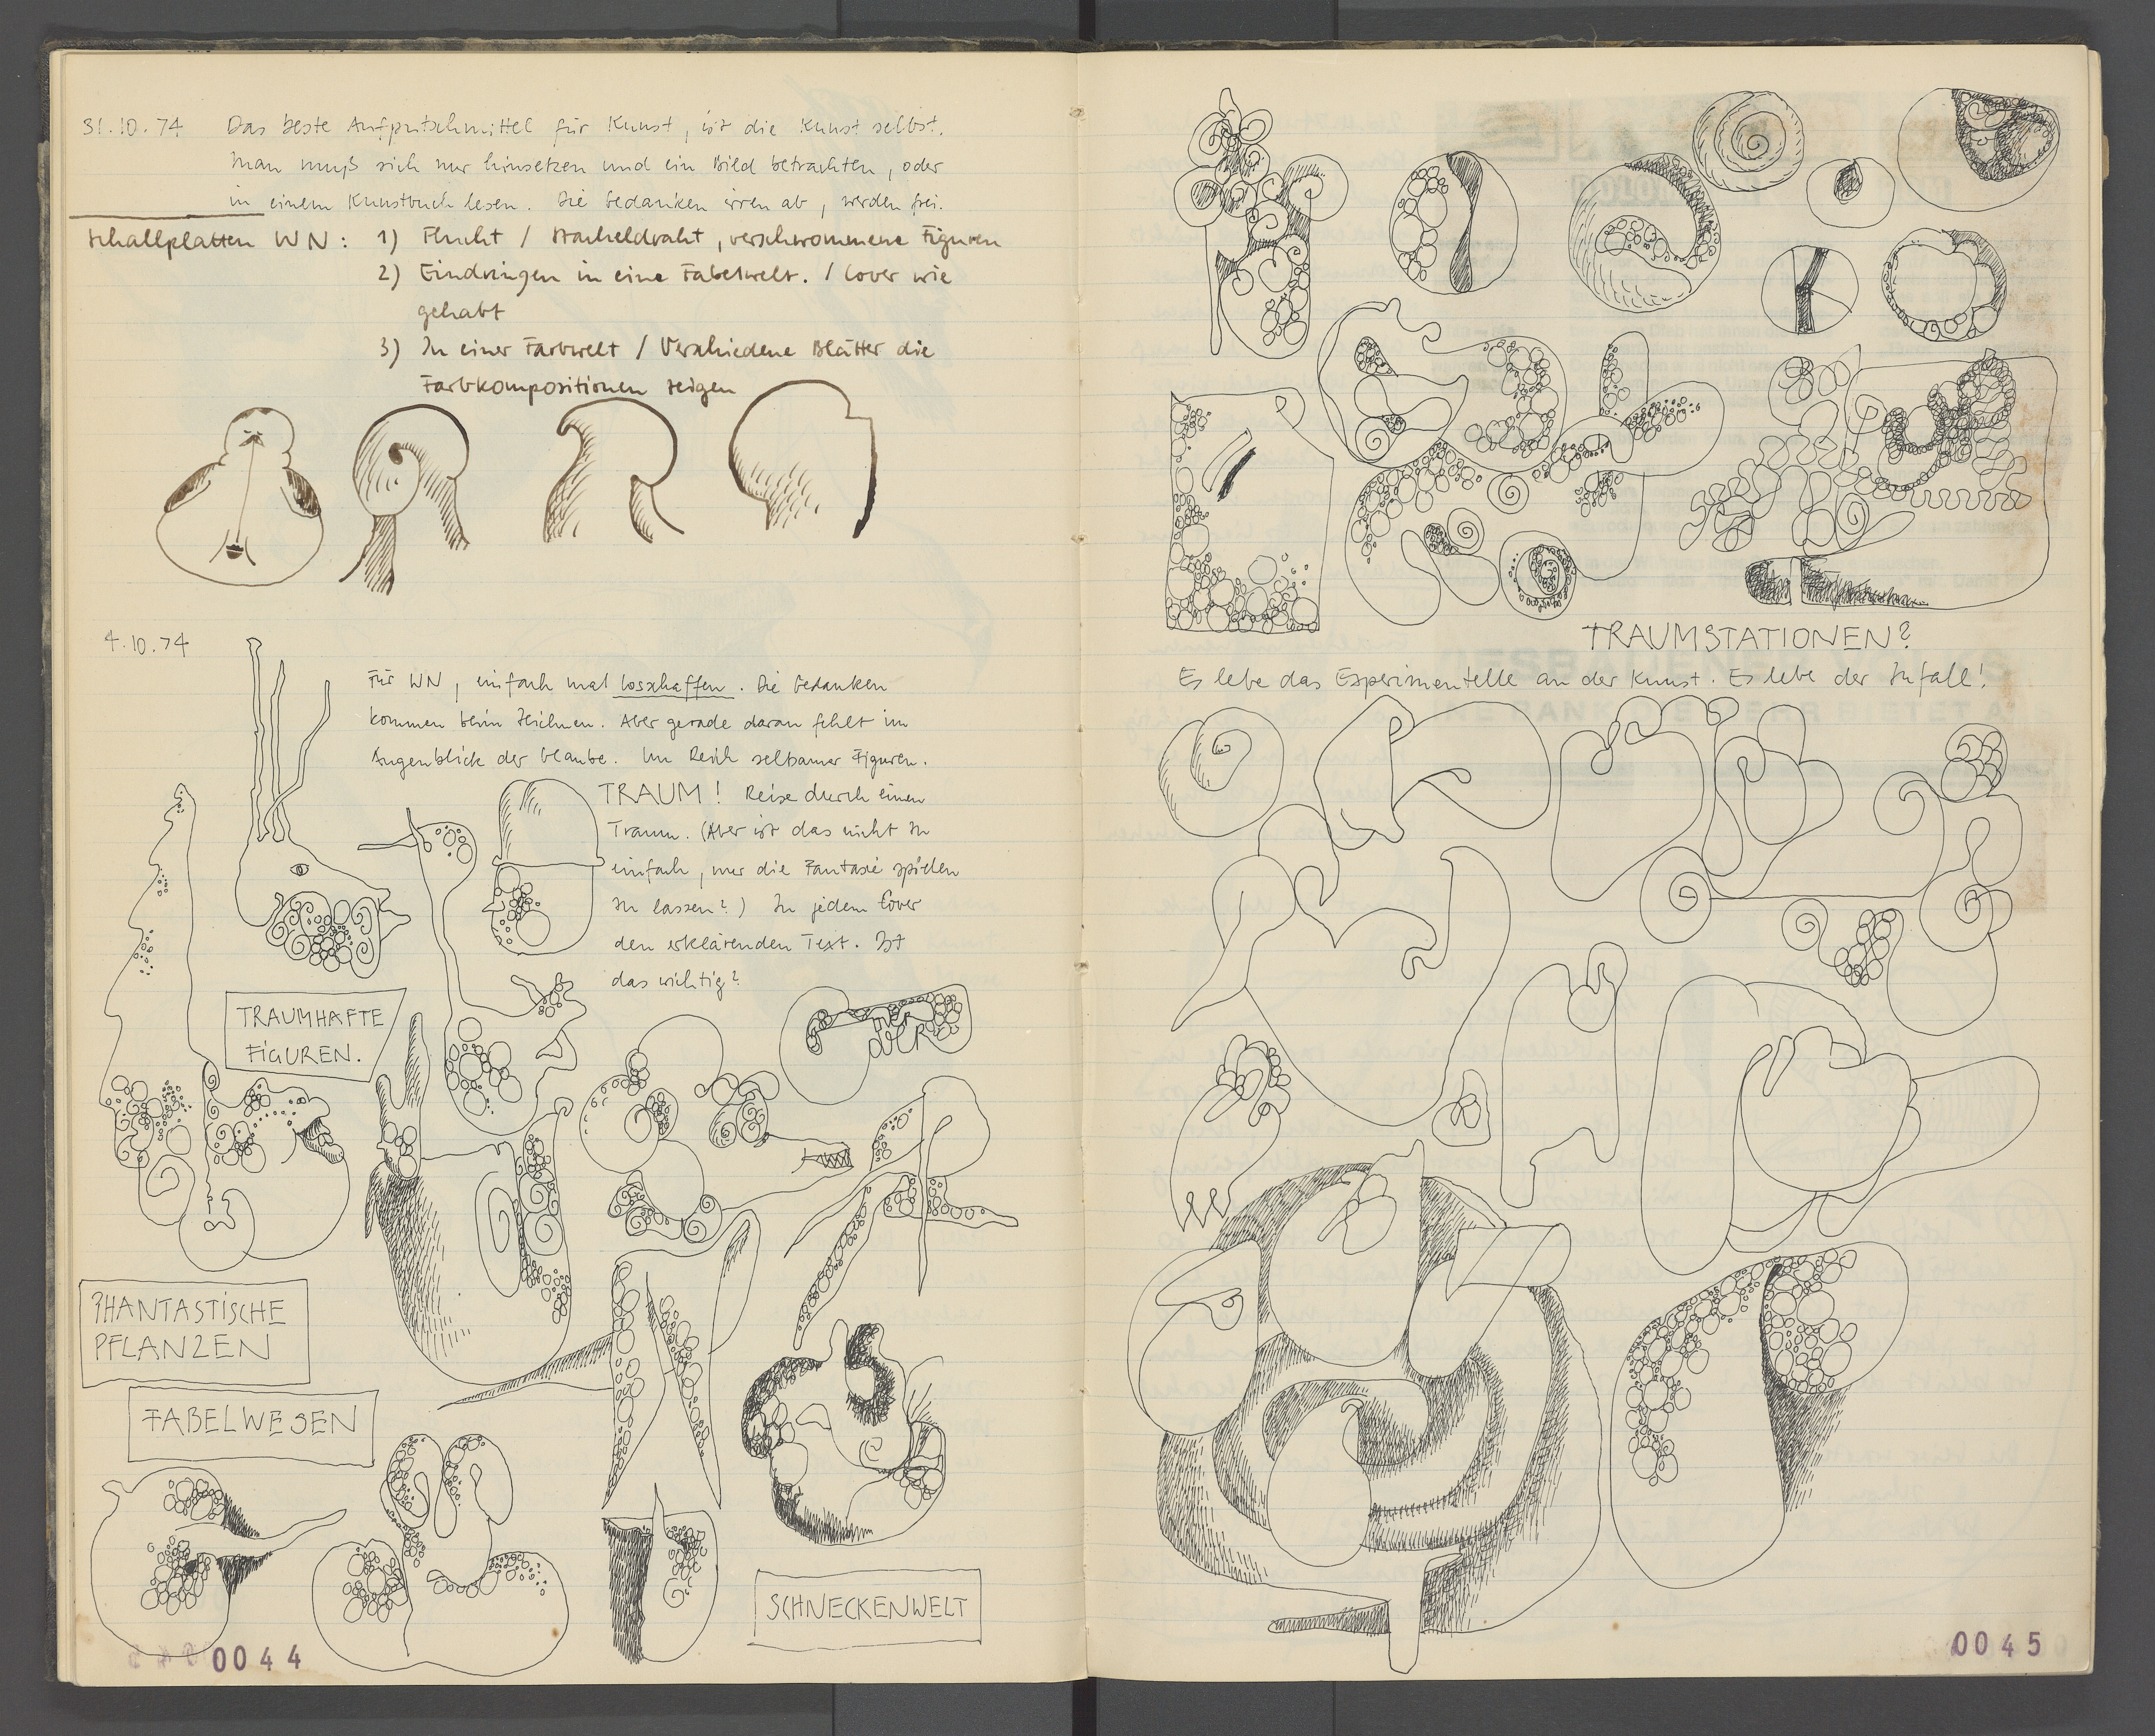 31.10.74 Das beste Aufputschmittel für Kunst, ist die Kunst selbst.
Man muß sich nur hinsetzen und ein Bild betrachten, oder
in einem Kunstbuch lesen. Die Gedanken irren ab, werden frei.
Schallplatten WN: 1) Flucht / Stacheldraht, verschwommene Figuren
2) Eindringen in eine Fabelwelt. / Cover wie
gehabt
3) In einer Farbwelt / Verschiedene Blätter die
Farbkompositionen zeigen
4.10.74
Für WN, einfach mal losschaffen. Die Gedanken
kommen beim Zeichnen. Aber gerade daran fehlt im
Augenblick der Glaube. Im Reich seltsamer Figuren.
TRAUM! Reise durch einen
Traum. (Aber ist das nicht zu
einfach, nur die Fantasie spielen
zu lassen?) In jedem Cover
den erklärenden Text. Ist
das wichtig?
TRAUMHAFTE
FIGUREN.
PHANTASTISCHE
PFLANZEN
FABELWESEN
SCHNECKENWELT
0044
TRAUMSTATIONEN?
Es lebe das Experimentelle an der Kunst. Es lebe der Zufall!
0045